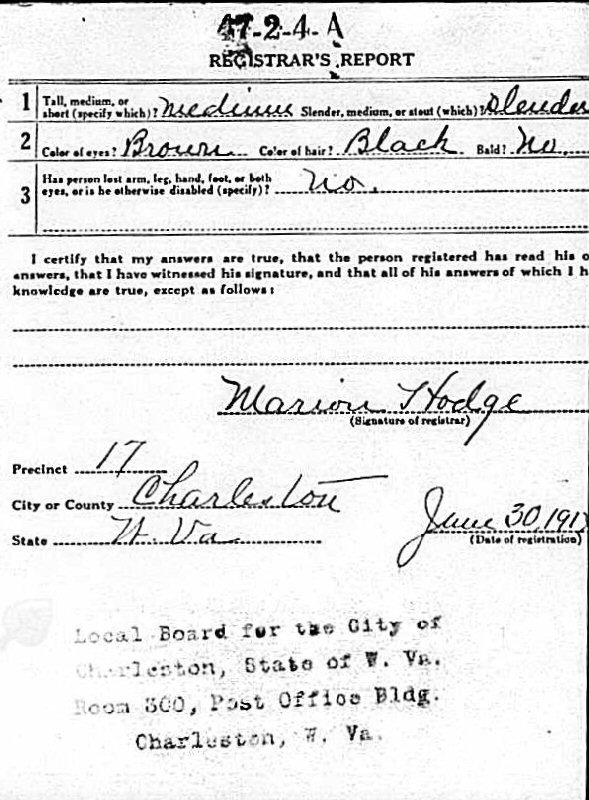 47-2-4-A
REGISTRAR'S REPORT
1 Tall, medium, or short (specify which)? medium Slender, medium, or stout (which)? Slender
2 Color of eyes? Brown Color of hair? Black Bald? No.
3 Has person lost arm, leg, hand, foot, or both eyes, or is he otherwise disabled (specify)? No.
I certify that my answers are true, that the person registered has read his o
answers, that I have witnessed his signature, and that all of his answers of which I h
knowledge are true, except as follows:
Marion Hodge
(Signature of registrar)
Precinct 17
City or County Charleston
State W Va.
June 30, 191
(Date of registration)
Local Board for the City of
Charleston, State of W. Va.
Room 300, Post Office Bldg.
Charleston, W. Va.